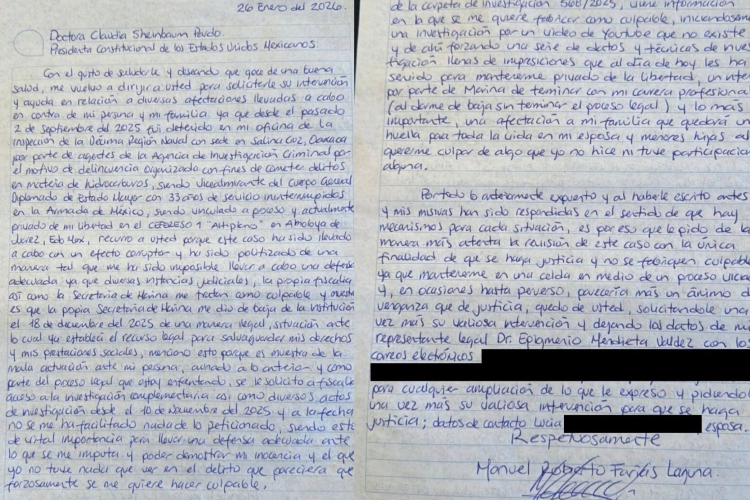 26 Enero del 2026.
Doctora Claudia Sheinbaum Pardo.
Presidenta Constitucional de los Estados Unidos Mexicanos.
Con el gusto de saludarle y deseando que goce de una buena
salud, me vuelvo a dirijir a usted para solicitarle su intervención
y ayuda en relación a diversas afectaciones llevadas a cabo
en contra de mi persona y mi familia. ya que desde el pasado
2 de septiembre del 2025 fui detenido en mi oficina de la
Inspección de la Décima Región Naval con sede en Salina Cruz, Oaxaca
por parte de agentes de la Agencia de Investigación Criminal por
el motivo de delincuencia organizada con fines de cometer delitos
en materia de hidrocarburos, siendo Vicealmirante del Cuerpo General
Diplomado de Estado Mayor con 33 años de servicio ininterrumpidos
en la Armada de México, siendo vinculado a proceso y actualmente
privado de mi libertad en el CEFERESO 1 "Altiplano" en Almoloya de
Juárez, Edo Mex, recurro a usted porque este caso ha sido llevado
a cabo con un efecto corruptor y ha sido politizado de una
manera tal que me ha sido imposible llevar a cabo una defensa
adecuada ya que diversas instancias judiciales, la propia fiscalía
así como la Secretaría de Marina me tratan como culpable y muestra
es que la propia Secretaría de Marina me dio de baja de la institución
el 18 de diciembre del 2025 de una manera ilegal, situación ante
lo cual ya establecí el recurso legal para salvaguardar mis derechos
y mis prestaciones sociales, menciono esto porque es muestra de la
mala actuación ante mi persona, aunado a lo anterior y como
parte del proceso legal que estoy enfrentando, se le solicitó a fiscalía
acceso a la investigación complementaria así como diversos actos
de investigación desde el 10 de Noviembre del 2025 y a la fecha
no se me ha facilitado nada de lo peticionado, siendo esto
de vital importancia para llevar una defensa adecuada ante
lo que se me imputa y poder demostrar mi inocencia y el que
yo no tuve nada que ver en el delito que pareciera que
forzosamente se me quiere hacer culpable.
de la carpeta de investigación 2025, tiene información
en lo que se me quiere fabricar como culpable, iniciándose
una investigación por un video de Youtube que no existe
y de ahí forzando una serie de datos y técnicas de inves-
tigación llenas de imprecisiones que al día de hoy les ha
servido para mantenerme privado de la libertad, un
por parte de Marina de terminar con mi carrera profesional
(al darme de baja sin terminar el proceso legal) y lo más
importante, una afectación a mi familia que quedará un
huella para toda la vida en mi esposa y menores hijas al
quererme culpar de algo que yo no hice ni tuve participación
alguna.
Por todo lo anteriormente expuesto y al haberle escrito antes
y mis misivas han sido respondidas en el sentido de que hay
mecanismos para cada situación, es por eso que le pido de la
manera más atenta la revisión de este caso con la única
finalidad de que se haga justicia y no se fabriquen culpables
ya que mantenerme en una celda en medio de un proceso
y, en ocasiones hasta perverso, parecería más un ánimo de
venganza que de justicia, quedo de usted, solicitándole una
vez más su valiosa intervención y dejando los datos de mi
representante legal Dr. Epigmenio Mendieta Valdez con los
correos electrónicos
para cualquier ampliación de lo que le expreso y pidiendo
una vez más su valiosa intervención para que se haga
justicia; datos de contacto Lucía esposa.
Respetuosamente
Manuel Roberto Farías Laguna.